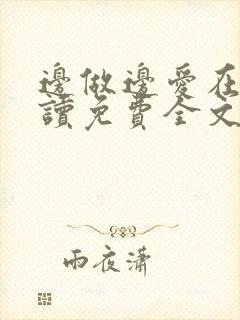 邊做邊愛在
讀免費全文
雨夜瀟